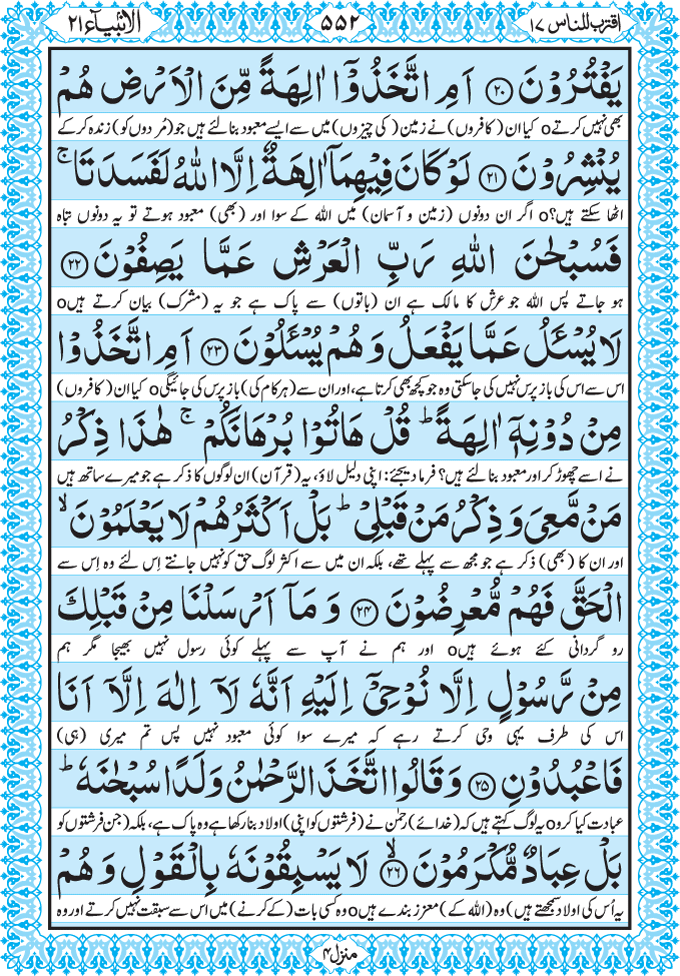 اقترب للناس ۱۷
۵۵۲
الانبیآء ۲۱
يَفْتُرُوْنَ ﴿۲۰﴾ اَمِ اتَّخَذُوْۤا اٰلِهَةً مِّنَ الْاَرْضِ هُمْ
بھی نہیں کرتے o کیا ان (کافروں) نے زمین (کی چیزوں) میں سے ایسے معبود بنا لئے ہیں جو (مُردوں کو) زندہ کر کے
يُنْشِرُوْنَ ﴿۲۱﴾ لَوْ كَانَ فِيْهِمَاۤ اٰلِهَةٌ اِلَّا اللّٰهُ لَفَسَدَتَا ۚ
اٹھا سکتے ہیں؟ o اگر ان دونوں (زمین و آسمان) میں اللہ کے سوا اور (بھی) معبود ہوتے تو یہ دونوں تباہ
فَسُبْحٰنَ اللّٰهِ رَبِّ الْعَرْشِ عَمَّا يَصِفُوْنَ ﴿۲۲﴾
ہو جاتے پس اللہ جو عرش کا مالک ہے ان (باتوں) سے پاک ہے جو یہ (مشرک) بیان کرتے ہیں o
لَا يُسْـَٔلُ عَمَّا يَفْعَلُ وَ هُمْ يُسْـَٔلُوْنَ ﴿۲۳﴾ اَمِ اتَّخَذُوْا
اس سے اس کی باز پرس نہیں کی جا سکتی وہ جو کچھ بھی کرتا ہے، اور ان سے (ہر کام کی) باز پرس کی جائیگی o کیا ان (کافروں)
مِنْ دُوْنِهٖۤ اٰلِهَةً ؕ قُلْ هَاتُوْا بُرْهَانَكُمْ ۚ هٰذَا ذِكْرُ
نے اسے چھوڑ کر اور معبود بنا لئے ہیں؟ فرما دیجئے: اپنی دلیل لاؤ، یہ (قرآن) ان لوگوں کا ذکر ہے جو میرے ساتھ ہیں
مَنْ مَّعِیَ وَ ذِكْرُ مَنْ قَبْلِیْ ؕ بَلْ اَكْثَرُهُمْ لَا يَعْلَمُوْنَ ۙ
اور ان کا (بھی) ذکر ہے جو مجھ سے پہلے تھے، بلکہ ان میں سے اکثر لوگ حق کو نہیں جانتے اِس لئے وہ اِس سے
الْحَقَّ فَهُمْ مُّعْرِضُوْنَ ﴿۲۴﴾ وَ مَاۤ اَرْسَلْنَا مِنْ قَبْلِكَ
رو گردانی کئے ہوئے ہیں o اور ہم نے آپ سے پہلے کوئی رسول نہیں بھیجا مگر ہم
مِنْ رَّسُوْلٍ اِلَّا نُوْحِیْۤ اِلَيْهِ اَنَّهٗ لَاۤ اِلٰهَ اِلَّاۤ اَنَا
اس کی طرف یہی وحی کرتے رہے کہ میرے سوا کوئی معبود نہیں پس تم میری (ہی)
فَاعْبُدُوْنِ ﴿۲۵﴾ وَ قَالُوا اتَّخَذَ الرَّحْمٰنُ وَلَدًا سُبْحٰنَهٗ ؕ
عبادت کیا کرو o یہ لوگ کہتے ہیں کہ (خدائے) رحمٰن نے (فرشتوں کو اپنی) اولاد بنا رکھا ہے وہ پاک ہے، بلکہ (جن فرشتوں کو
بَلْ عِبَادٌ مُّكْرَمُوْنَ ۙ﴿۲۶﴾ لَا يَسْبِقُوْنَهٗ بِالْقَوْلِ وَ هُمْ
یہ اُس کی اولاد سمجھتے ہیں) وہ (اللہ کے) معزز بندے ہیں o وہ کسی بات (کے کرنے) میں اس سے سبقت نہیں کرتے اور وہ
منزل ۴